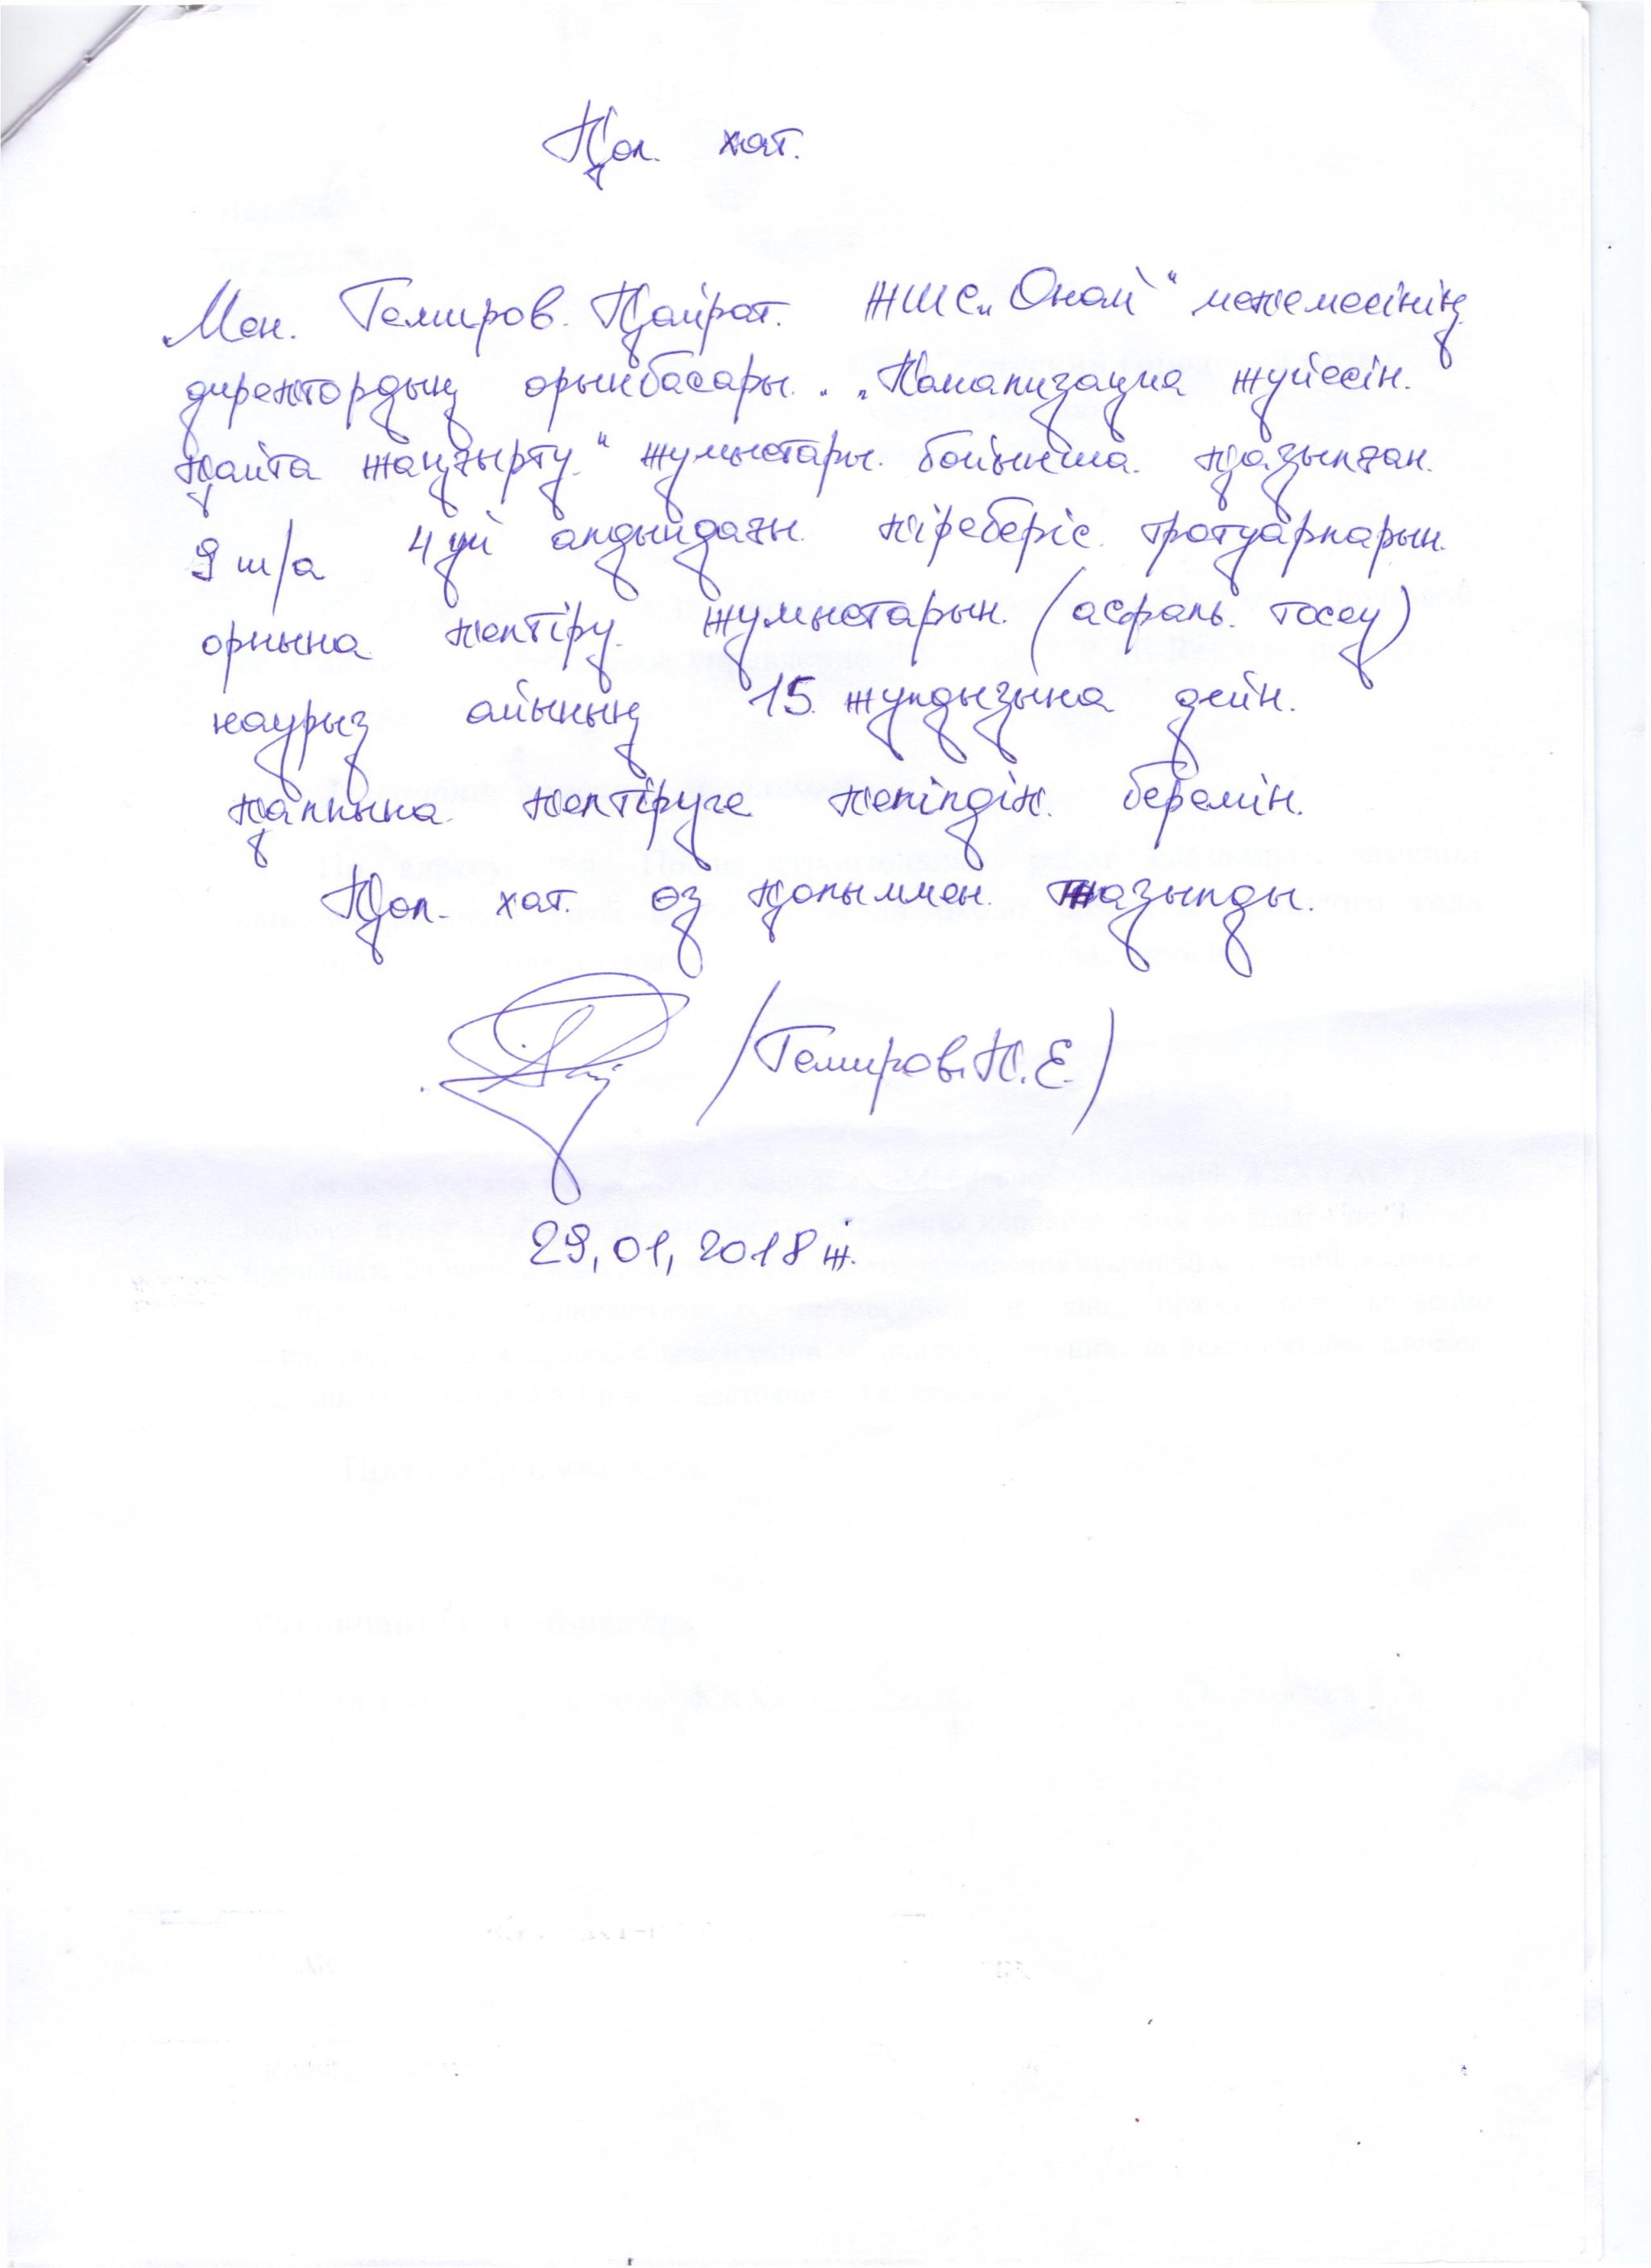 Қол хат.
Мен. Темиров. Қайрат. ЖШС „Онай“ мекемесінің
директордың орынбасары. „Канализация жүйесін.
қайта жаңғырту.“ жұмыстары. бойынша. қазылған.
9 ш/а 4 үй алдындағы. кіреберіс. тротуарларын.
орнына келтіру. жұмыстарын. (асфаль. тосеу)
наурыз айының 15. жұлдызына дейн.
қалпына келтіруге кепілдік. беремін.
Қол хат. өз қолыммен. жазылды.
/Темиров. К. Е./
29,01,2018 ж.